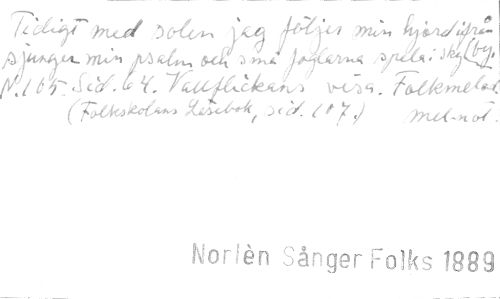 Tidigt med solen jag följer min hjord ifrån
sjunger min psalm och små foglarna spela: sky (by.
N. 105. Sid. 64. Vallflickans visa. Folkmelod.
(Folkskolans Läsebok, sid. 107.) mel-not.
Norlèn Sånger Folks 1889